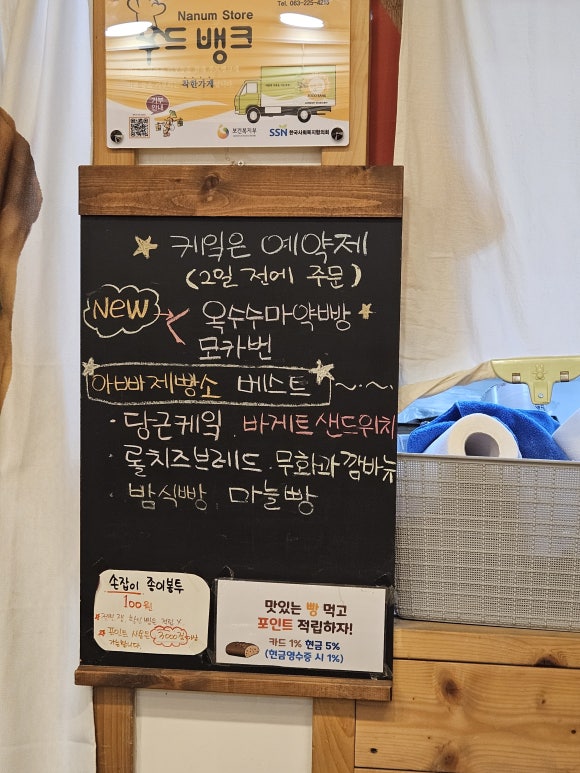 Tel. 063-225-4215
Nanum Store
푸드 뱅크
착한가게
보건복지부
SSN 한국사회복지협의회
케익은 예약제
(2일 전에 주문)
NEW
옥수수마약빵
모카번
아빠제빵소 베스트
· 당근케익 . 바게트샌드위치
· 롤치즈브레드 . 무화과깜빠뉴
· 밤식빵 . 마늘빵
손잡이 종이봉투
100원
포인트 사용은 3000점이상
가능합니다.
맛있는 빵 먹고
포인트 적립하자!
카드 1% 현금 5%
(현금영수증 시 1%)